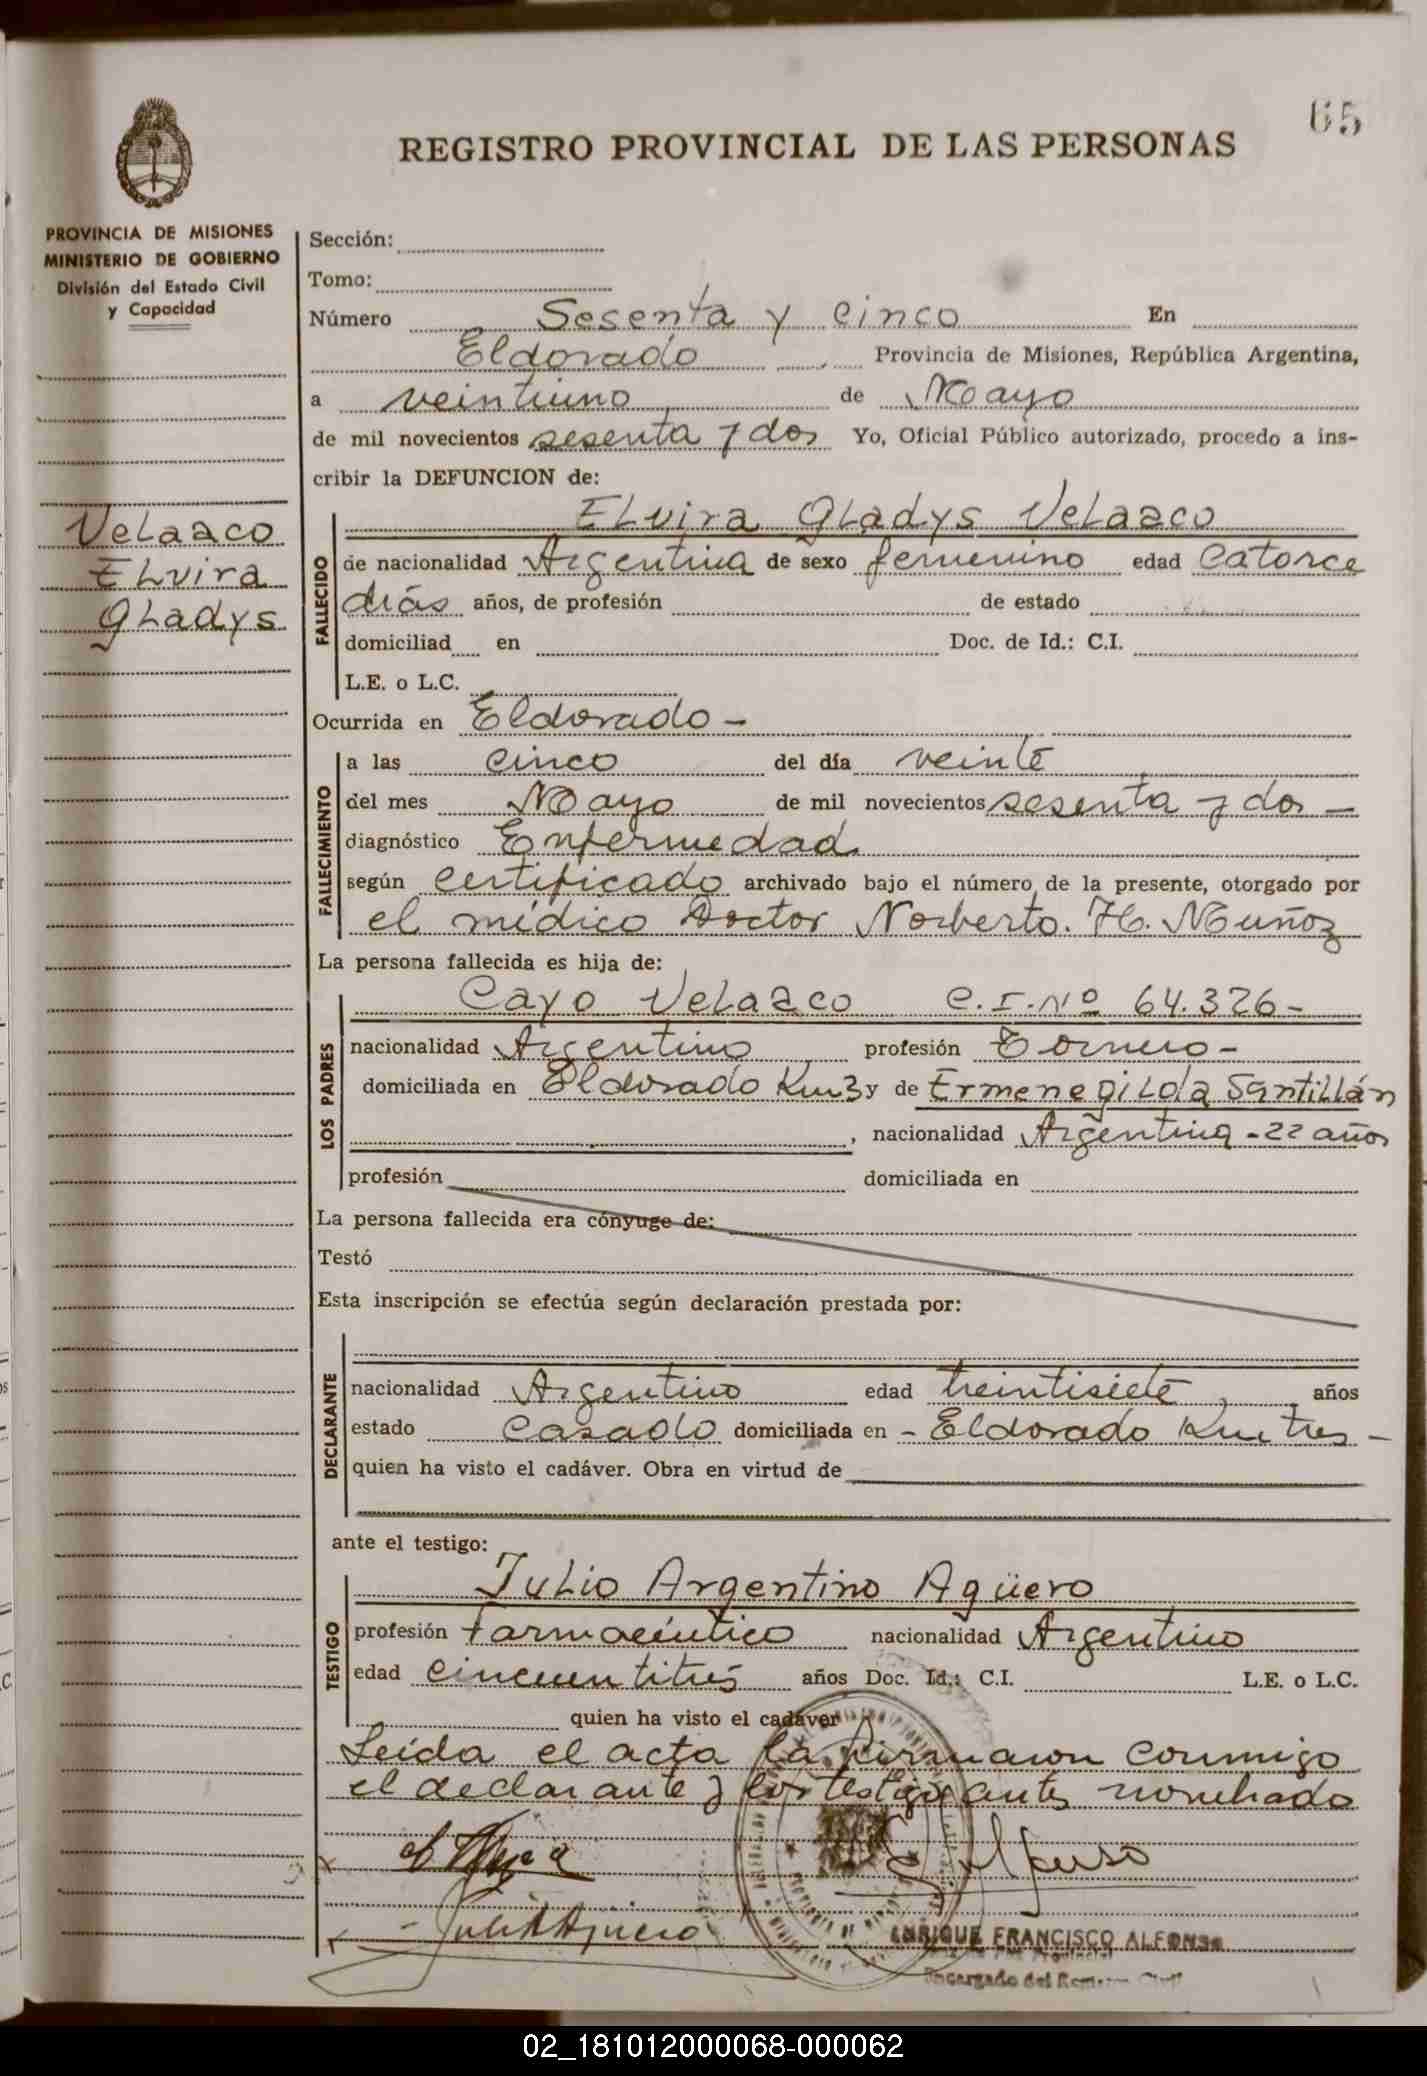 65
REGISTRO PROVINCIAL DE LAS PERSONAS
PROVINCIA DE MISIONES
MINISTERIO DE GOBIERNO
División del Estado Civil
y Capacidad
Velazco
Elvira
Gladys
Sección:
Tomo:
Número Sesenta y cinco En
Eldorado Provincia de Misiones, República Argentina,
a veintiuno de Mayo
de mil novecientos sesenta y dos Yo, Oficial Público autorizado, procedo a ins-
cribir la DEFUNCION de:
FALLECIDO
Elvira Gladys Velazco
de nacionalidad Argentina de sexo femenino edad Catorce
días años, de profesión de estado
domiciliad en Doc. de Id.: C.I.
L.E. o L.C.
Ocurrida en Eldorado -
FALLECIMIENTO
a las cinco del día veinte
del mes Mayo de mil novecientos sesenta y dos -
diagnóstico Enfermedad
según certificado archivado bajo el número de la presente, otorgado por
el médico Doctor Norberto. H. Muñoz
La persona fallecida es hija de:
LOS PADRES
Cayo Velazco C.I. Nº 64.326-
nacionalidad Argentino profesión
domiciliada en Eldorado Km3 y de Ermenegilda Santillán
, nacionalidad Argentina - 22 años
profesión domiciliada en
La persona fallecida era cónyuge de:
Testó
Esta inscripción se efectúa según declaración prestada por:
DECLARANTE
nacionalidad Argentino edad treintisiete años
estado Casado domiciliada en - Eldorado Km tres -
quien ha visto el cadáver. Obra en virtud de
ante el testigo:
TESTIGO
Julio Argentino Agüero
profesión Farmacéutico nacionalidad Argentino
edad cincuentitrés años Doc. Id.: C.I. L.E. o L.C.
quien ha visto el cadáver
Leída el acta la firmaron conmigo
el declarante y los testigos antes nombrado
ENRIQUE FRANCISCO ALFONSO
Encargado del Registro Civil
02_181012000068-000062